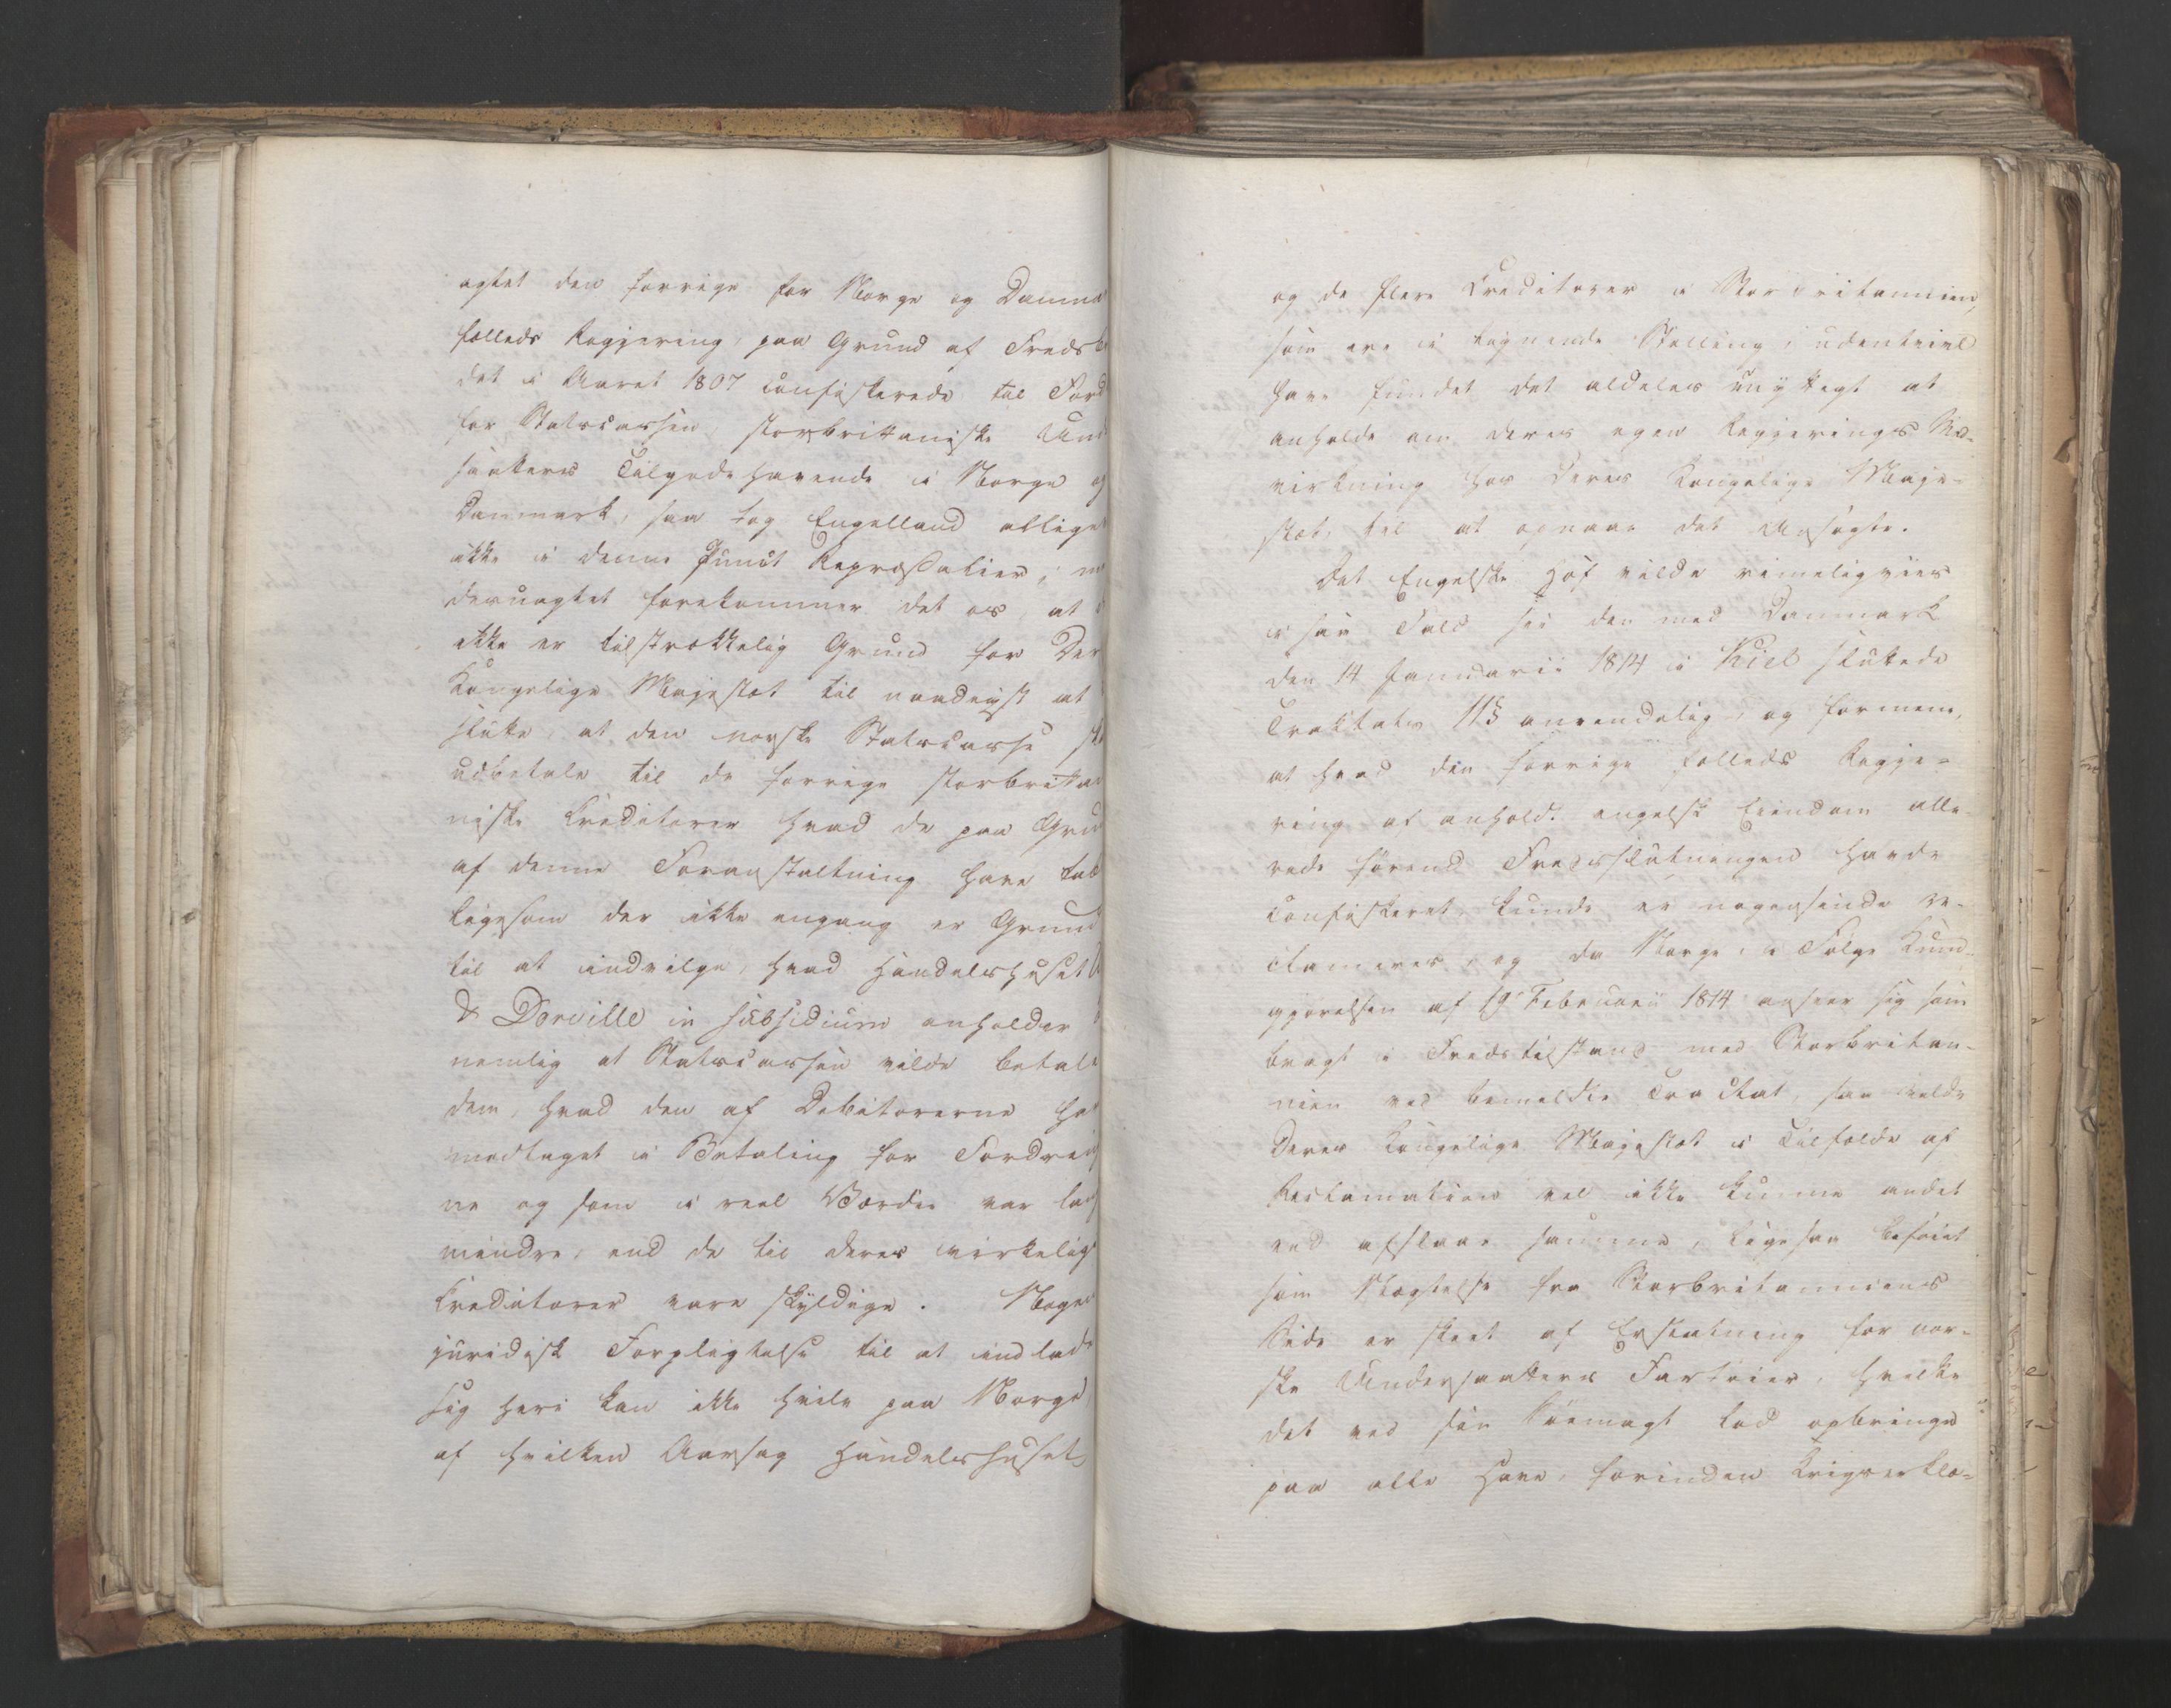 agtet den forrige for Norge og Danma
fælleds Regjering, paa Grund af Fredsbr
det i Aaret 1807 confiskerede til Ford
for Statscassen, storbrittaniske Und
saatters Tilgodehavende i Norge og
Danmark, saa tog Engelland alligev
ikke i denne Punct Repressalier; m
desuagtet forekommer det os, at d
ikke er tilstrækkelig Grund for Der
Kongelige Majestæt til naadigst at
slutte, at den norske Statscasse sk
udbetale til de forrige storbritta
niske Creditorer hvad de paa Grun
af denne Foranstaltning have tab
ligesom der ikke engang er Grund
til at indvilge, hvad Handelshuset
& Dorville in subsidium anholder
nemlig at Statscassen vilde betale
dem, hvad den af Debitorerne har
modtaget i Betaling for Fordrin
ne og som i reel Værdie var lan
mindre, end de til deres virkelige
Creditorer vare skyldige. Nogen
juridisk Forpligtelse til at indlade
sig heri kan ikke hvile paa Norge,
af hvilken Aarsag Handelshuset
og de flere Creditorer i Storbritannien,
som ere i lignende Stilling, udentvivl
have fundet det aldeles unyttigt at
anholde om deres egen Regjerings Med-
virkning hos Deres Kongelige Maje-
stæt, til at opnaae det Ansøgte.
Det Engelske Hof vilde rimeligviis
i saa Fald see den med Danmark
den 14 Januarii 1814 i Kiel sluttede
Traktats 11§ anvendelig, og formene,
at hvad den forrige fælleds Regje-
ring af anholdt engelsk Eiendom alle-
rede førend Fredsslutningen havde
confiskeret, kunde ei nogensinde re-
clameres, og da Norge, i Følge Kund-
gjørelsen af 19 Februarii 1814 ansaae sig som
bragt i Fredstilstand med Storbritan-
nien ved bemeldte Tractat, saa vilde
Deres Kongelige Majestæt i Tilfælde af
Reclamation vel ikke kunne andet
end afslaae samme, ligesaa beføiet
som Nægtelse fra Storbritanniens
Side er skeet af Erstatning for nor-
ske Undersaatters Fartøier, hvilke
det ved sin Søemagt lod opbringe
paa alle Have, forinden Krigserklæ-